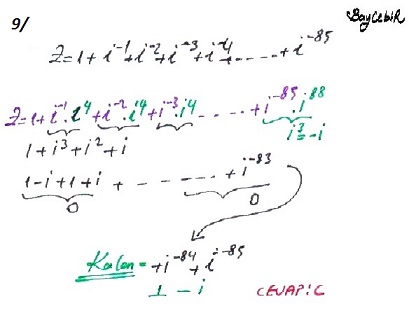 9/
BayCebir
Z=1+i⁻¹+i⁻²+i⁻³+i⁻⁴+.....+i⁻⁸⁵
Z=1+i⁻¹.i⁴+i⁻².i⁴+i⁻³.i⁴.....+i⁻⁸⁵.i⁸⁸
i³=-i
1+i³+i²+i
1-i+1+i + - - - - - +i⁻⁸³
0 0
Kalan=+i⁻⁸⁴+i⁻⁸⁵
1 -i
CEVAP:C